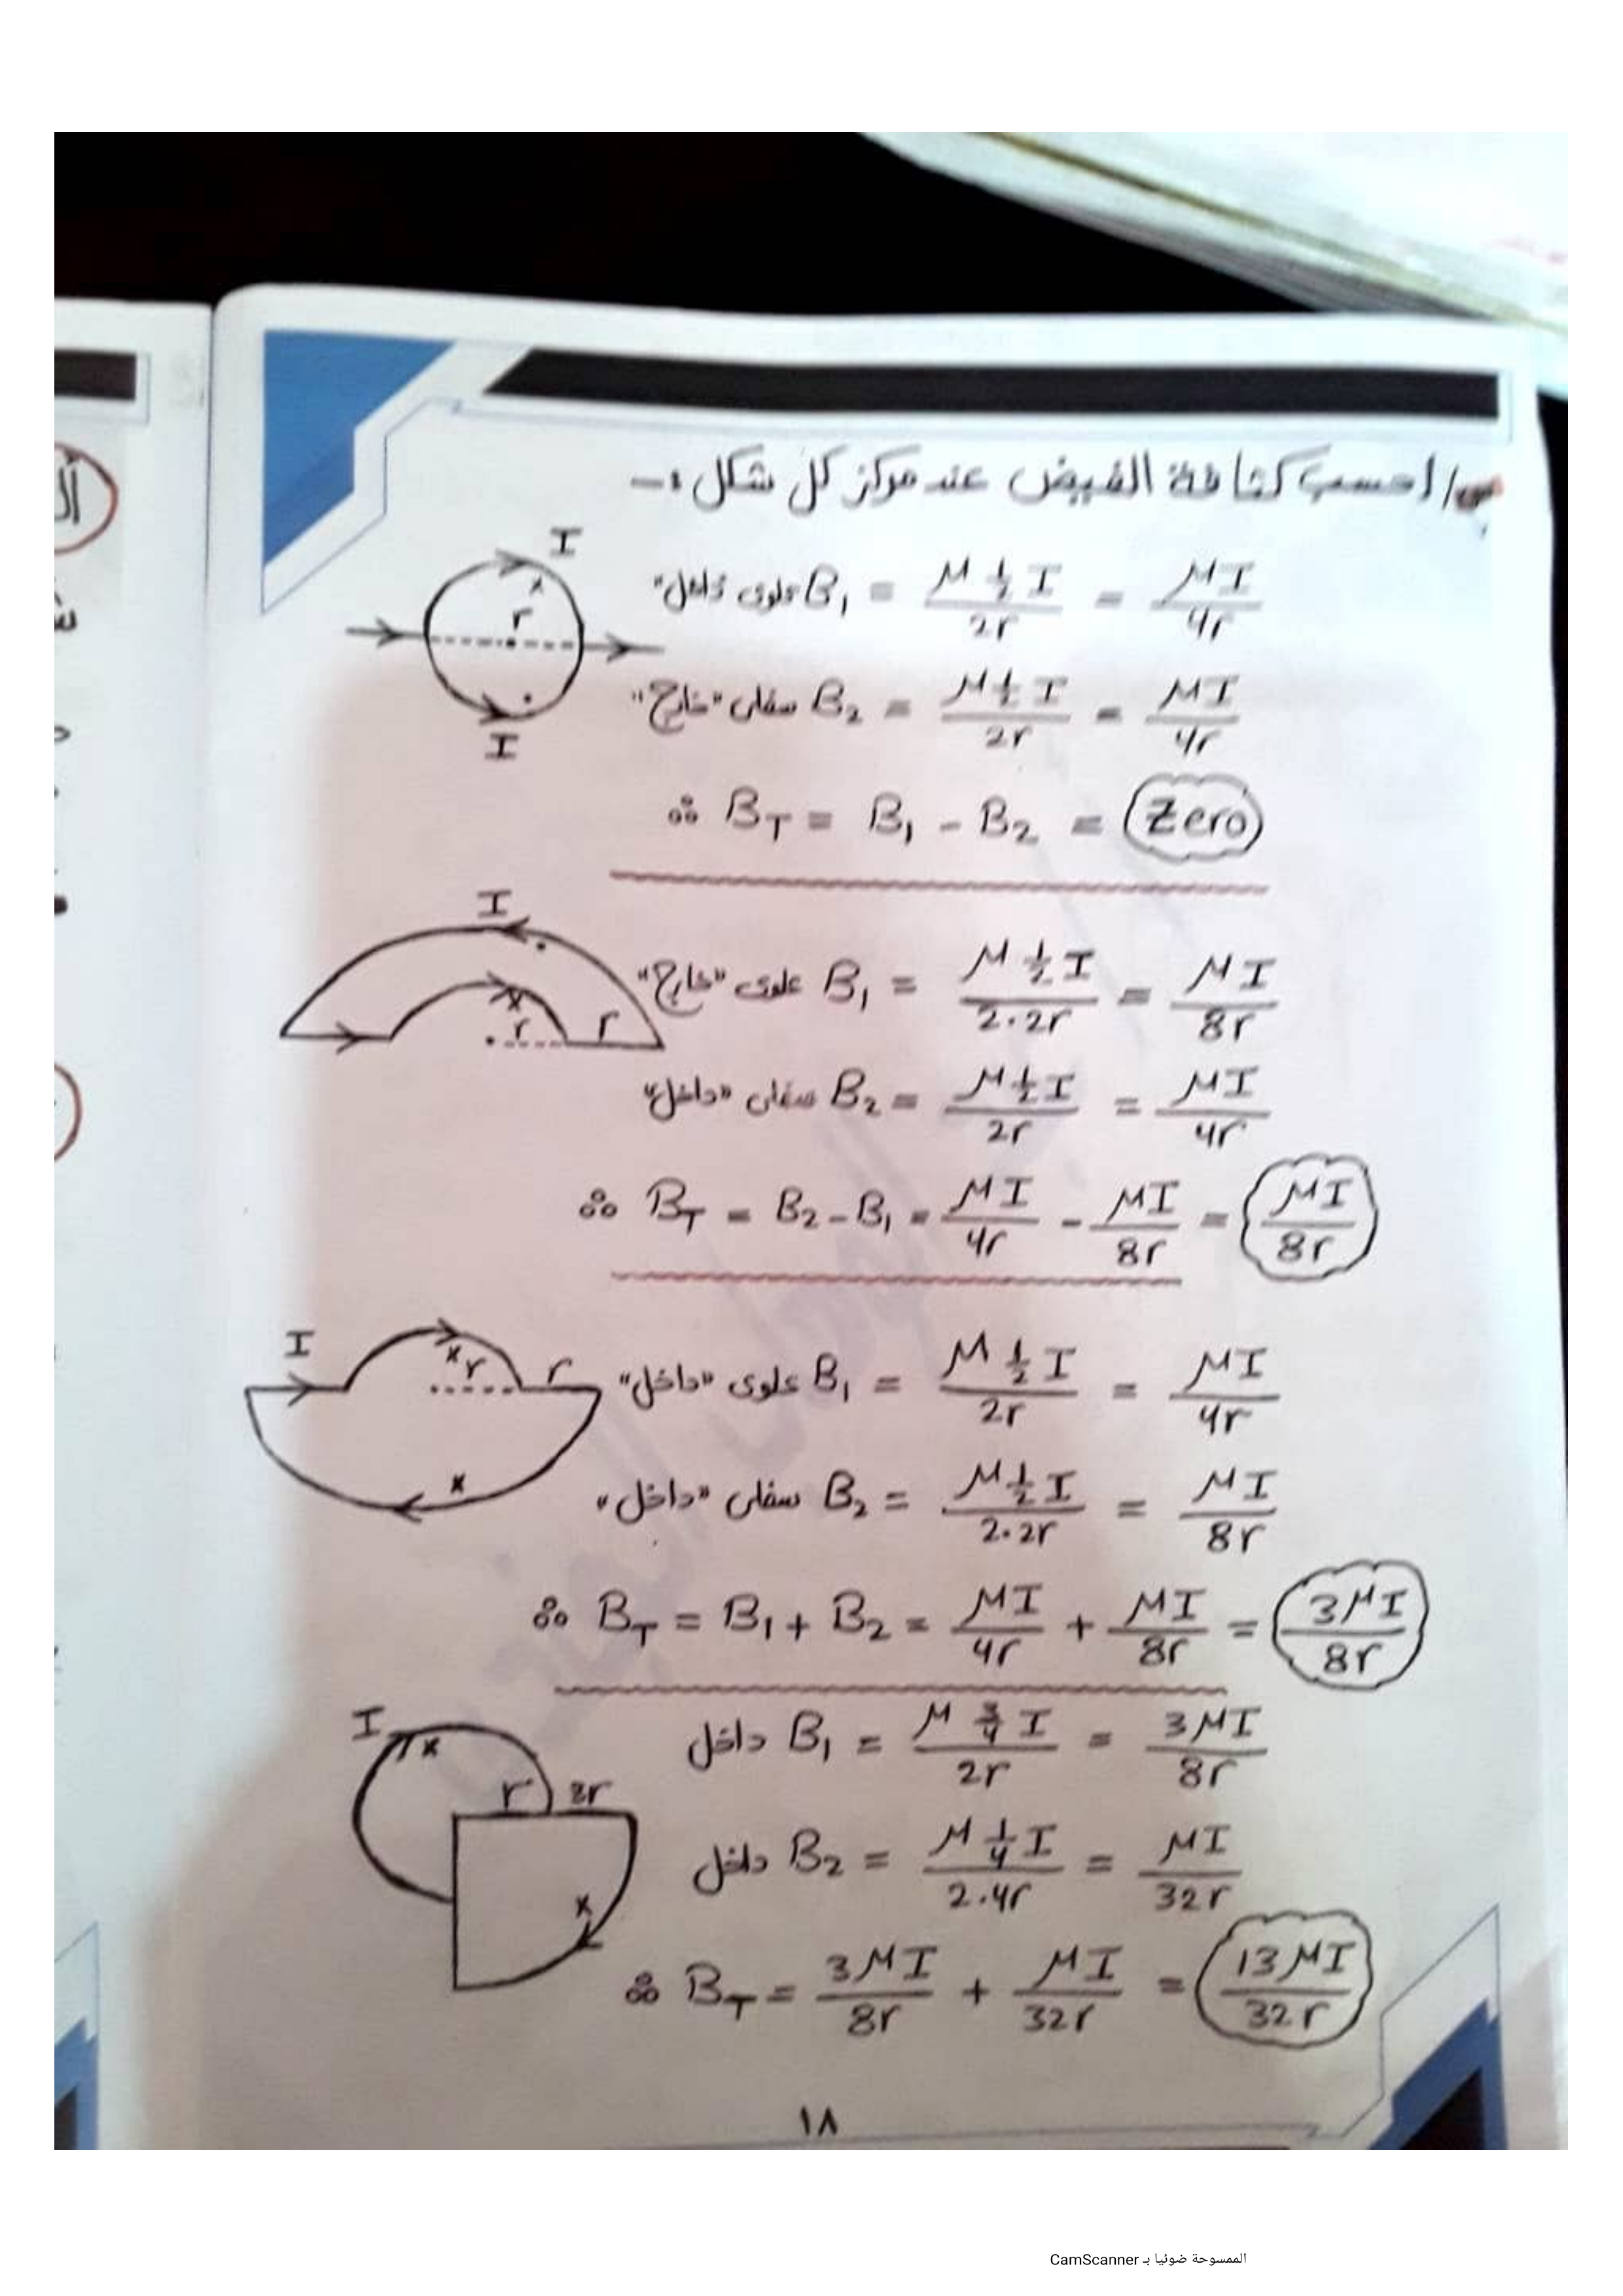 س/ احسب كثافة الفيض عند مركز كل شكل :-
I
علوى "داخل" B₁ = μ ½ I / 2r = μI / 4r
x
r
سفلى "خارج" B₂ = μ ½ I / 2r = μI / 4r
I
∴ B_T = B₁ - B₂ = Zero
I
علوى "خارج" B₁ = μ ½ I / 2.2r = μI / 8r
x
r r
سفلى "داخل" B₂ = μ ½ I / 2r = μI / 4r
∴ B_T = B₂ - B₁ = μI / 4r - μI / 8r = μI / 8r
I
x r r
علوى "داخل" B₁ = μ ½ I / 2r = μI / 4r
x
سفلى "داخل" B₂ = μ ½ I / 2.2r = μI / 8r
∴ B_T = B₁ + B₂ = μI / 4r + μI / 8r = 3μI / 8r
I
x
داخل B₁ = μ ¾ I / 2r = 3μI / 8r
r 3r
داخل B₂ = μ ¼ I / 2.4r = μI / 32r
x
∴ B_T = 3μI / 8r + μI / 32r = 13μI / 32r
١٨
الممسوحة ضوئيا بـ CamScanner